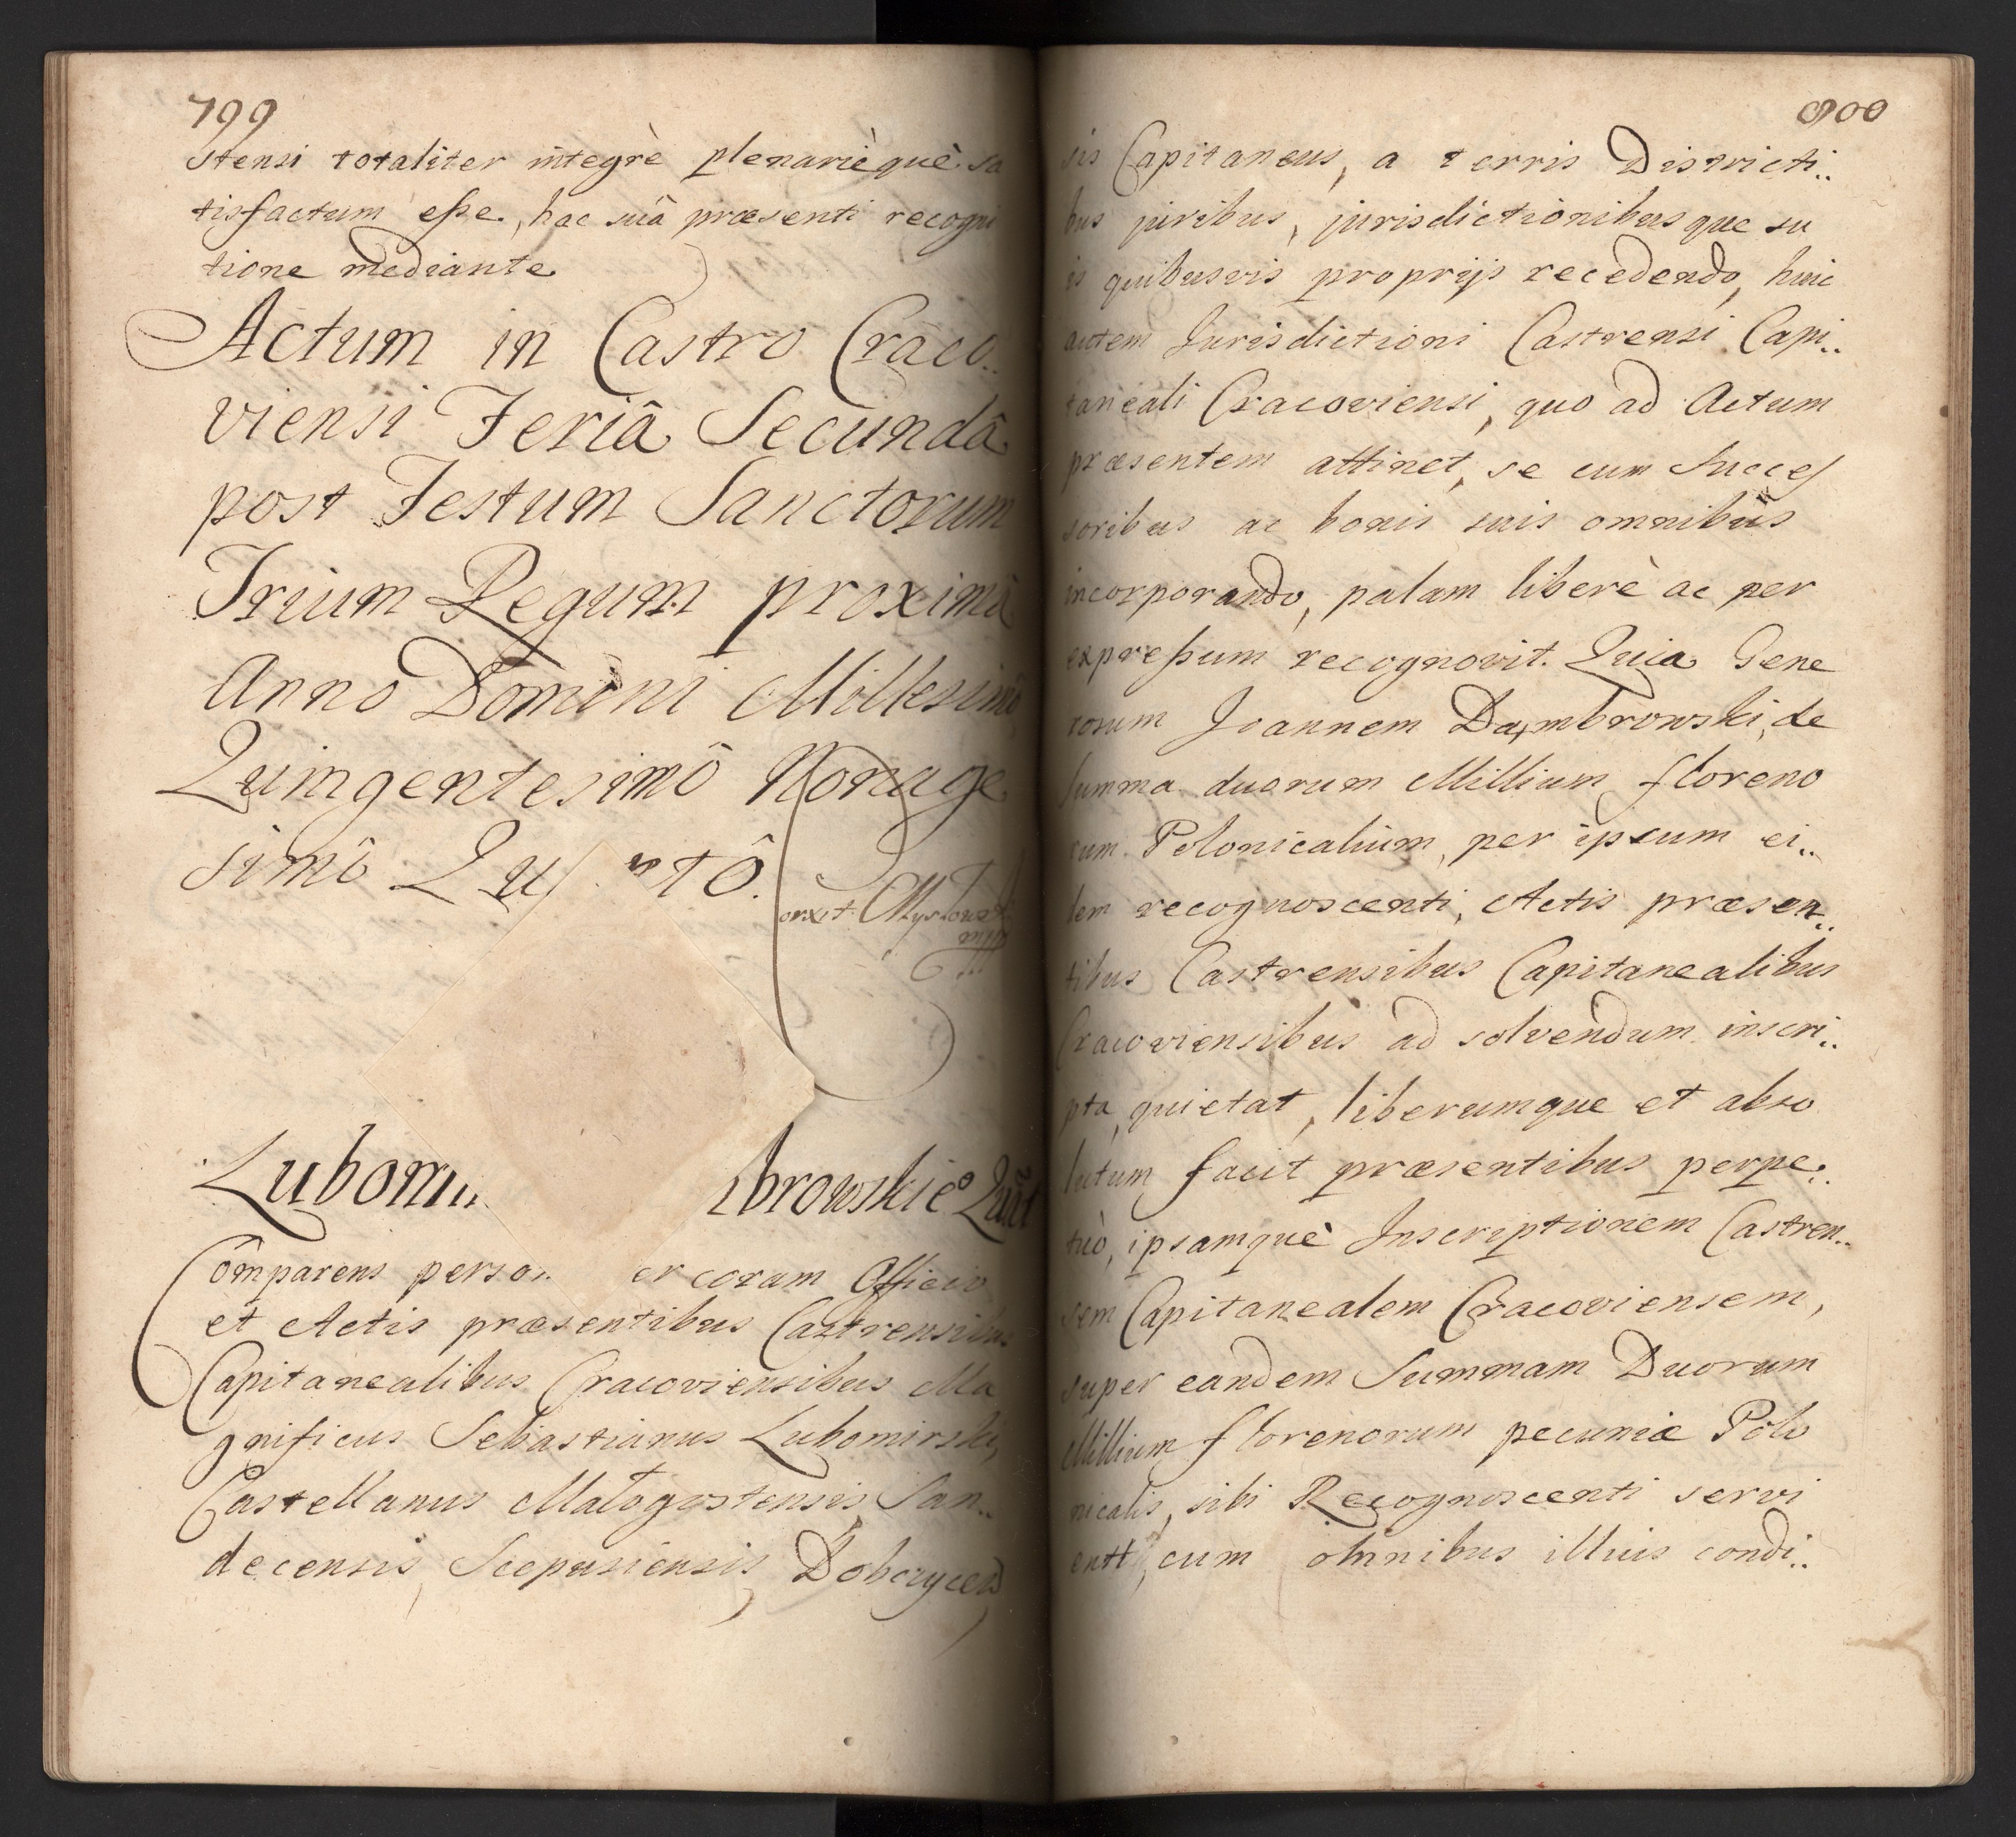 799
stensi totaliter integrè plenariè què sa
tisfactum eße, hac suâ præsenti recogni
tione mediante
Actum in Castro Craco..
viensi Feriâ Secundâ
post Festum Sanctorum
Trium Regum proximâ
Anno Domini Millesimô
Quingentesimô Nonage
simô Qu rtô.
Lubomi browskiẽ Quit
Comparens person er coram Officio
et Actis præsentibus Castrensibus
Capitanealibus Cracoviensibus Ma
gnificus Sebastianus Lubomirski,
Castellanus Malogostensis, San..
decensis, Scepusiensis, Dobczycen
800
sis Capitaneus, a terris Districti..
bus juribus, jurisdictionibusque su
is quibusvis proprijs recedendo, huic
autem Jurisdictioni Castrensi Capi..
taneali Cracoviensi, quo ad Actum
præsentem attinet, se cum Succes
soribus ac bonis suis omnibus
incorporando, palam liberè ac per
expreßum recognovit. Quia Gene
rosum Joannem Dambrowski, de
Summa duorum Millium floreno
rum Polonicalium, per ipsum ei..
dem recognoscenti, Actis præsen..
tibus Castrensibus Capitanealibus
Cracoviensibus ad solvendum inscri..
pta, quietat, liberumque et abso
lutum facit præsentibus perpe..
tuò, ipsamquè Inscriptionem Castren..
sem Capitanealem Cracoviensem,
super eandem Summam Duorum
Millium florenorum pecuniæ Polo
nicalis, sibi Recognoscenti servi
entem, cum omnibus illius condi..